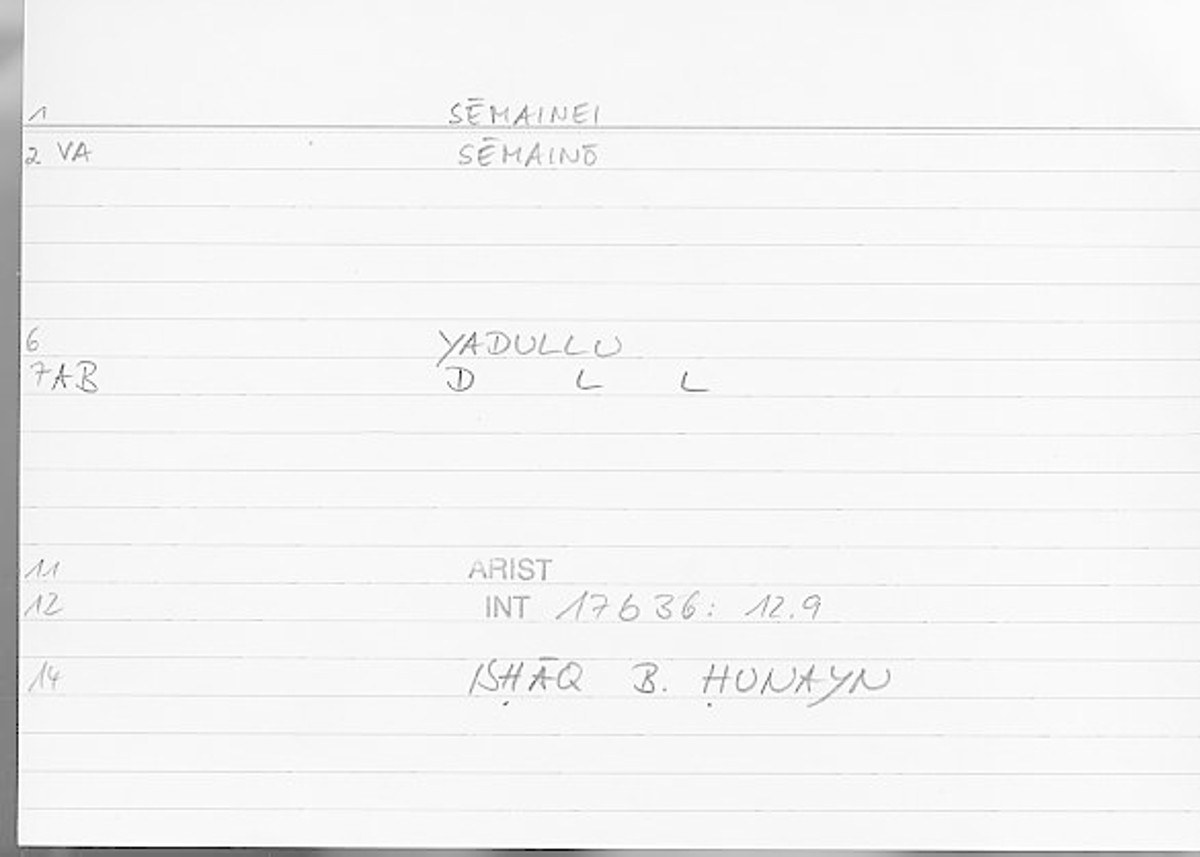 1 SĒMAINEI
2 VA SĒMAINŌ
6 YADULLU
7AB D L L
11 ARIST
12 INT 17b36: 12.9
14 ISḤĀQ B. ḤUNAYN